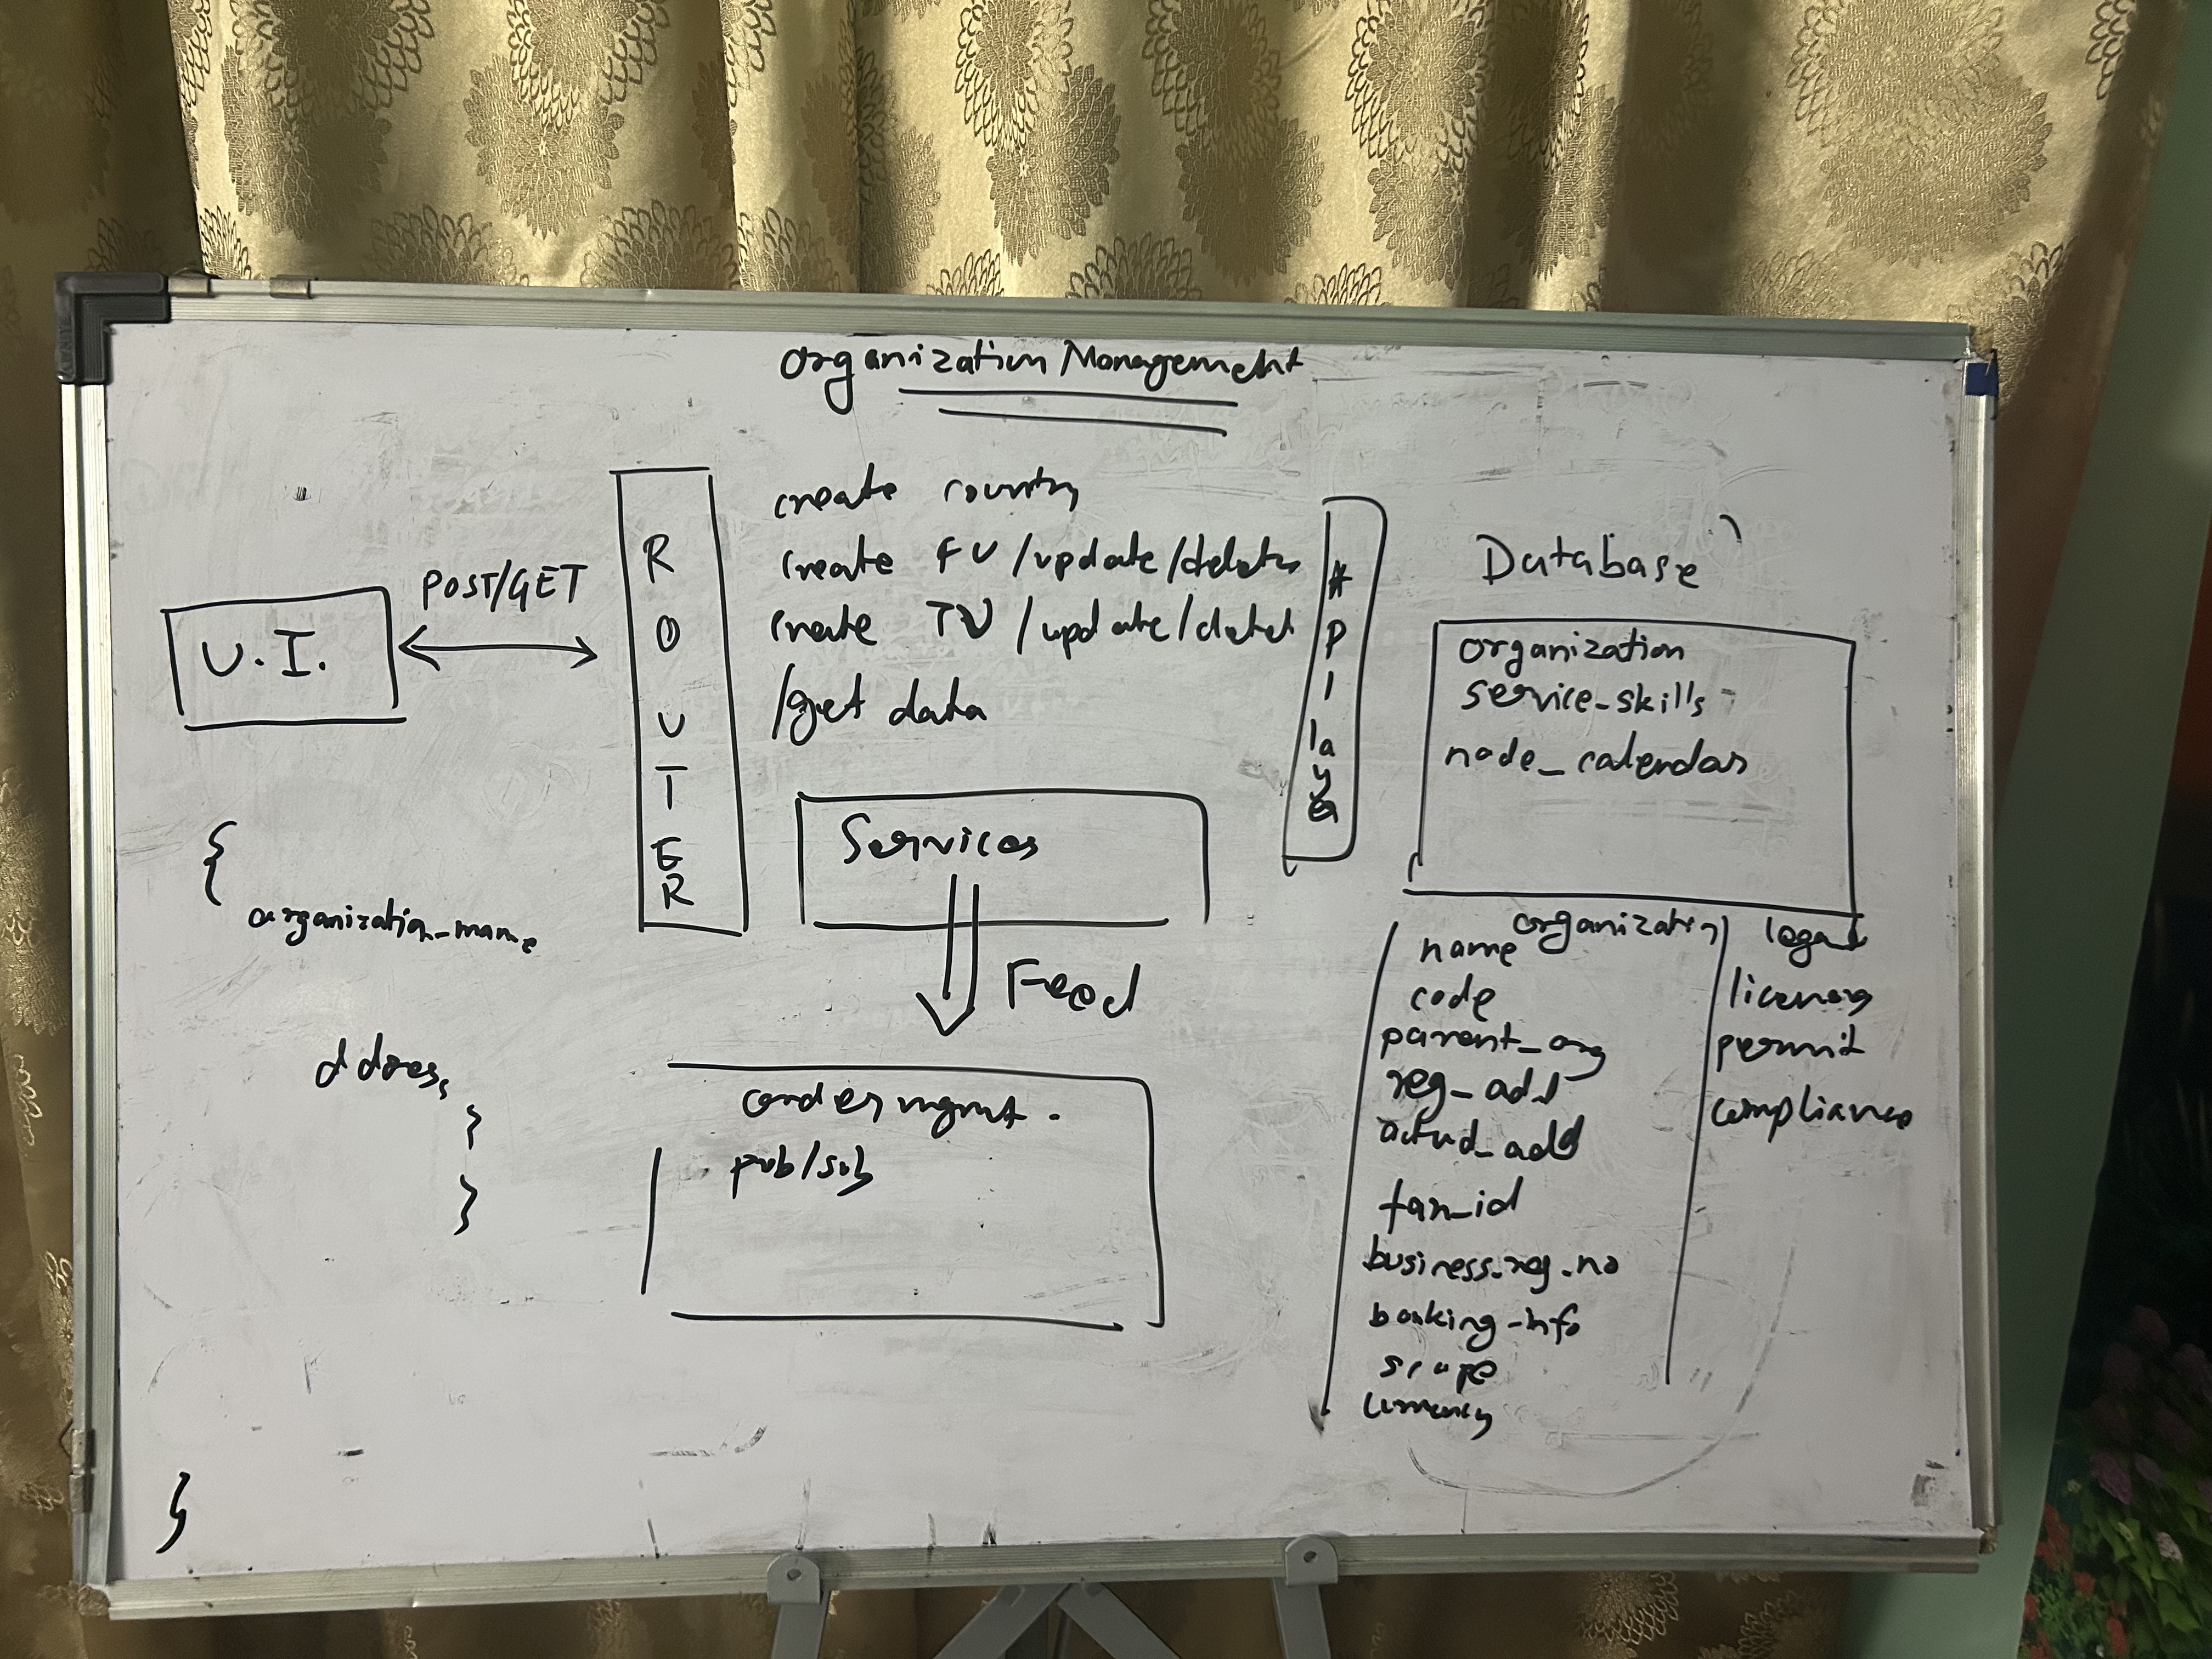 organization Management
create country
create FU /update/delete
create TU /update/delet
/get data
U.I.
POST/GET
ROUTER
API layer
Services
Feed
order mgmt.
pub/sub
{
organization_name
ddress
}
}
}
Database
organization
service_skills
node_calendar
organization
name
code
parent_org
reg_add
actual_add
tax_id
business.reg.no
banking-info
scope
currency
legal
licenses
permit
compliance